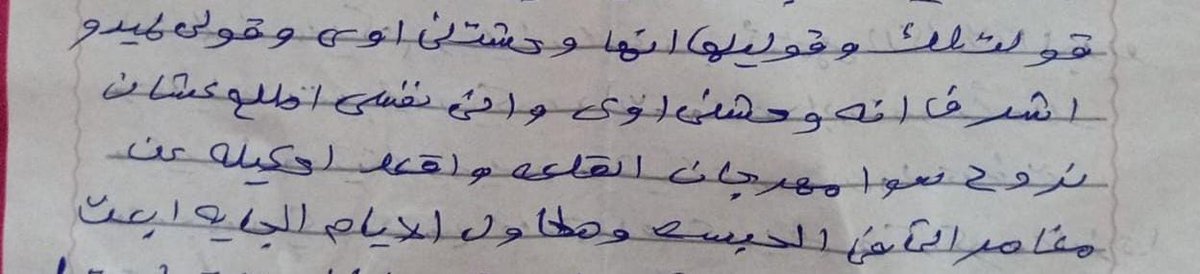 قولتلك وقوليلها انها وحشتنى اوى وقولى لميدو
اشرف انه وحشنى اوى وانى نفسى اطلع عشان
نروح سوا مهرجان القلعه واقعد احكيله عن
مغامراتى فى الحبسه وهحاول الايام الجايه ابعت